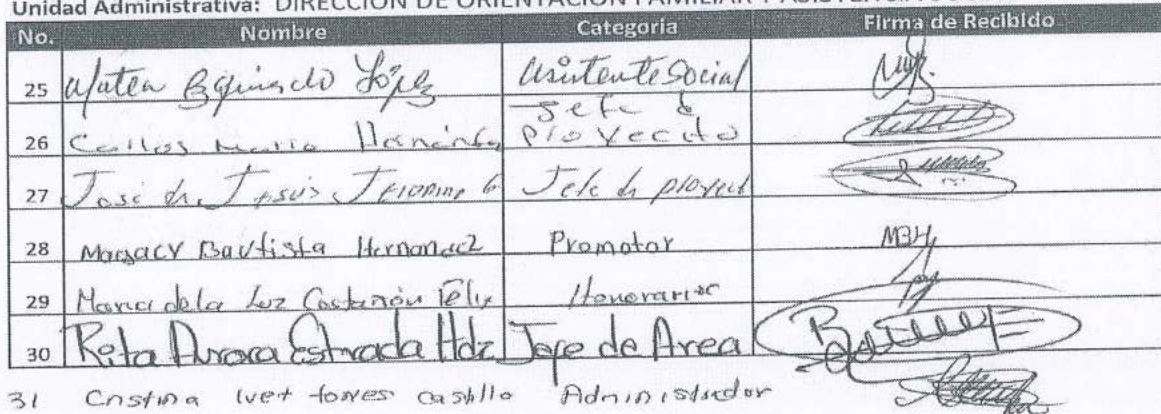 Unidad Administrativa: DIRECCIÓN DE ORIENTACIÓN FAMILIAR Y ASISTENCIA
No. Nombre Categoria Firma de Recibido
25 López Asistente Social
26 Carlos Mario Hernández Jefe d Proyecto
27 José de Jesús Jeronimo G Jefe de proyect
28 Bautista Hernandez Promotor MBH
29 Maria de la Luz Castañón Félix Honorarios
30 Rita Aurora Estrada Hdz Jefe de Area
31 Cristina Ivet torres castillo Administrador